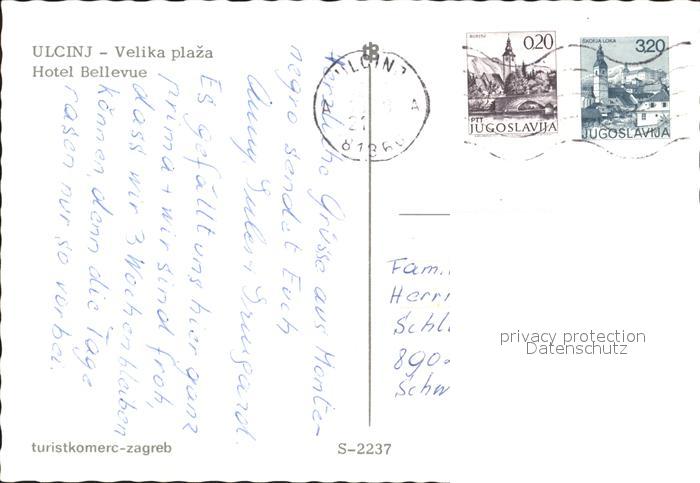 ULCINJ – Velika plaža
Hotel Bellevue
Herzliche Grüsse aus Monte-
negro sendet Euch
Es gefällt uns hier ganz
prima + wir sind froh,
dass wir 3 Wochen bleiben
können, denn die Tage
rasen nur so vorbei.
ULCINJ
A A
BOHINJ
0,20
PTT
JUGOSLAVIJA
ŠKOFJA LOKA
3,20
JUGOSLAVIJA
Fam.
Herr
Schl
890
Schw
privacy protection
Datenschutz
turistkomerc-zagreb
S-2237